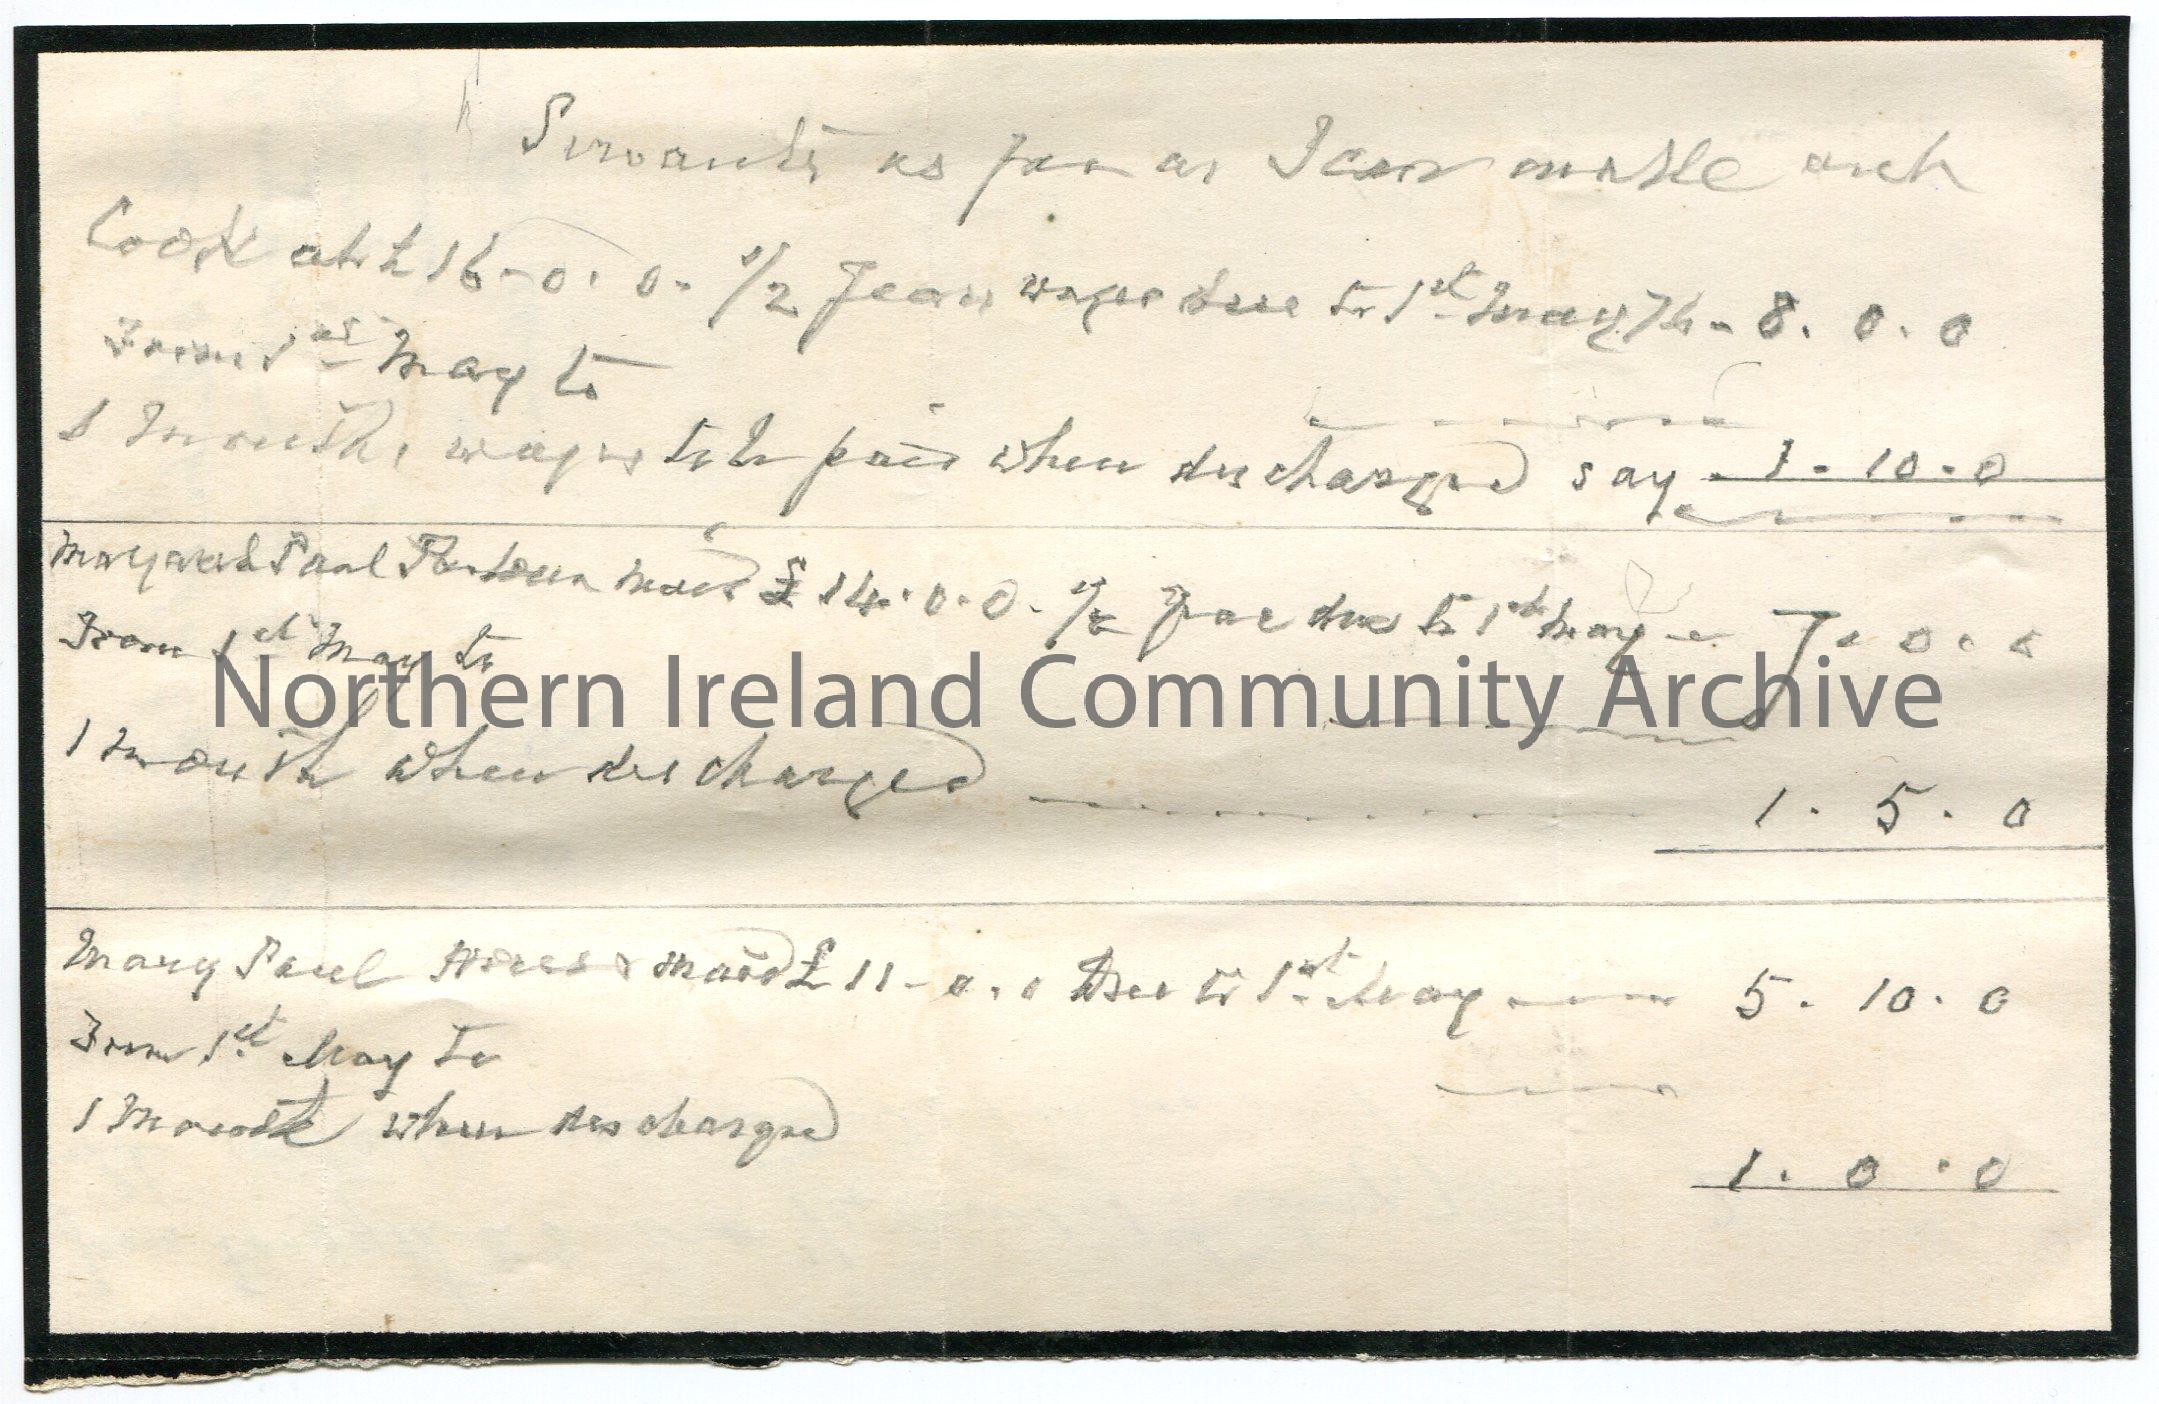 Servants as far as I can make out
Cook at £16-0.0. 1/2 Years wages due to 1st May 76 - 8. 0. 0
From 1st May to
1 Month, wages to be paid when discharged say - 1 - 10 - 0
Margaret Paul Parlour maid £14.0.0. 1/2 Year due to 1st May - 7. 0. 0
From 1st May to
Northern Ireland Community Archive
1 Month when discharged 1. 5. 0
Mary Paul House maid £11-0.0 Due to 1st May 5. 10. 0
From 1st May to
1 Month when discharged
1. 0. 0